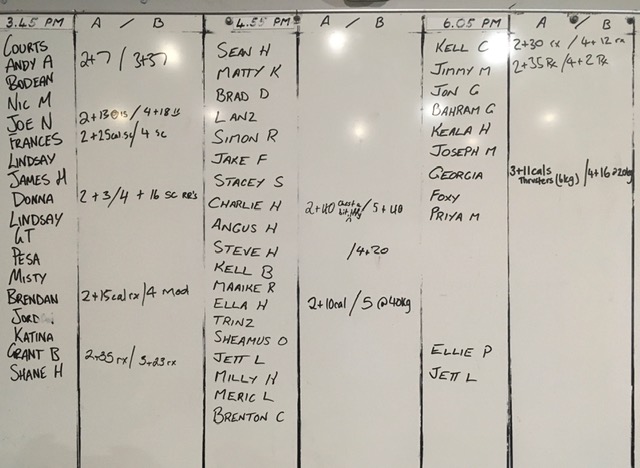 3.45 PM A / B
COURTS
ANDY A 2+7 / 3+37
BODEAN
NIC M
JOE N 2+13 / 4+18
FRANCES 2+25cal sc / 4 sc
LINDSAY
JAMES H
DONNA 2+3/4 + 16 sc RR's
LINDSAY
GT
PESA
MISTY
BRENDAN 2+15cal rx / 4 mod
JORD
KATINA
GRANT B 2+35 rx / 3+23 rx
SHANE H
4.55 PM A / B
SEAN H
MATTY K
BRAD D
LANZ
SIMON R
JAKE F
STACEY S
CHARLIE H 2+40 / 5+40
ANGUS H
STEVE H /4+20
KELL B
MAAIKE R
ELLA H 2+10cal / 5 @40kg
TRINZ
SHEAMUS O
JETT L
MILLY H
MERIC L
BRENTON C
6.05 PM A / B
KELL C 2+30 rx / 4+12 rx
JIMMY M 2+35 Rx / 4+2 Rx
JON G
BAHRAM G
KEALA H
JOSEPH M
GEORGIA 3+11cals / 4+16 @20kg
Thrusters (6kg)
FOXY
PRIYA M
ELLIE P
JETT L